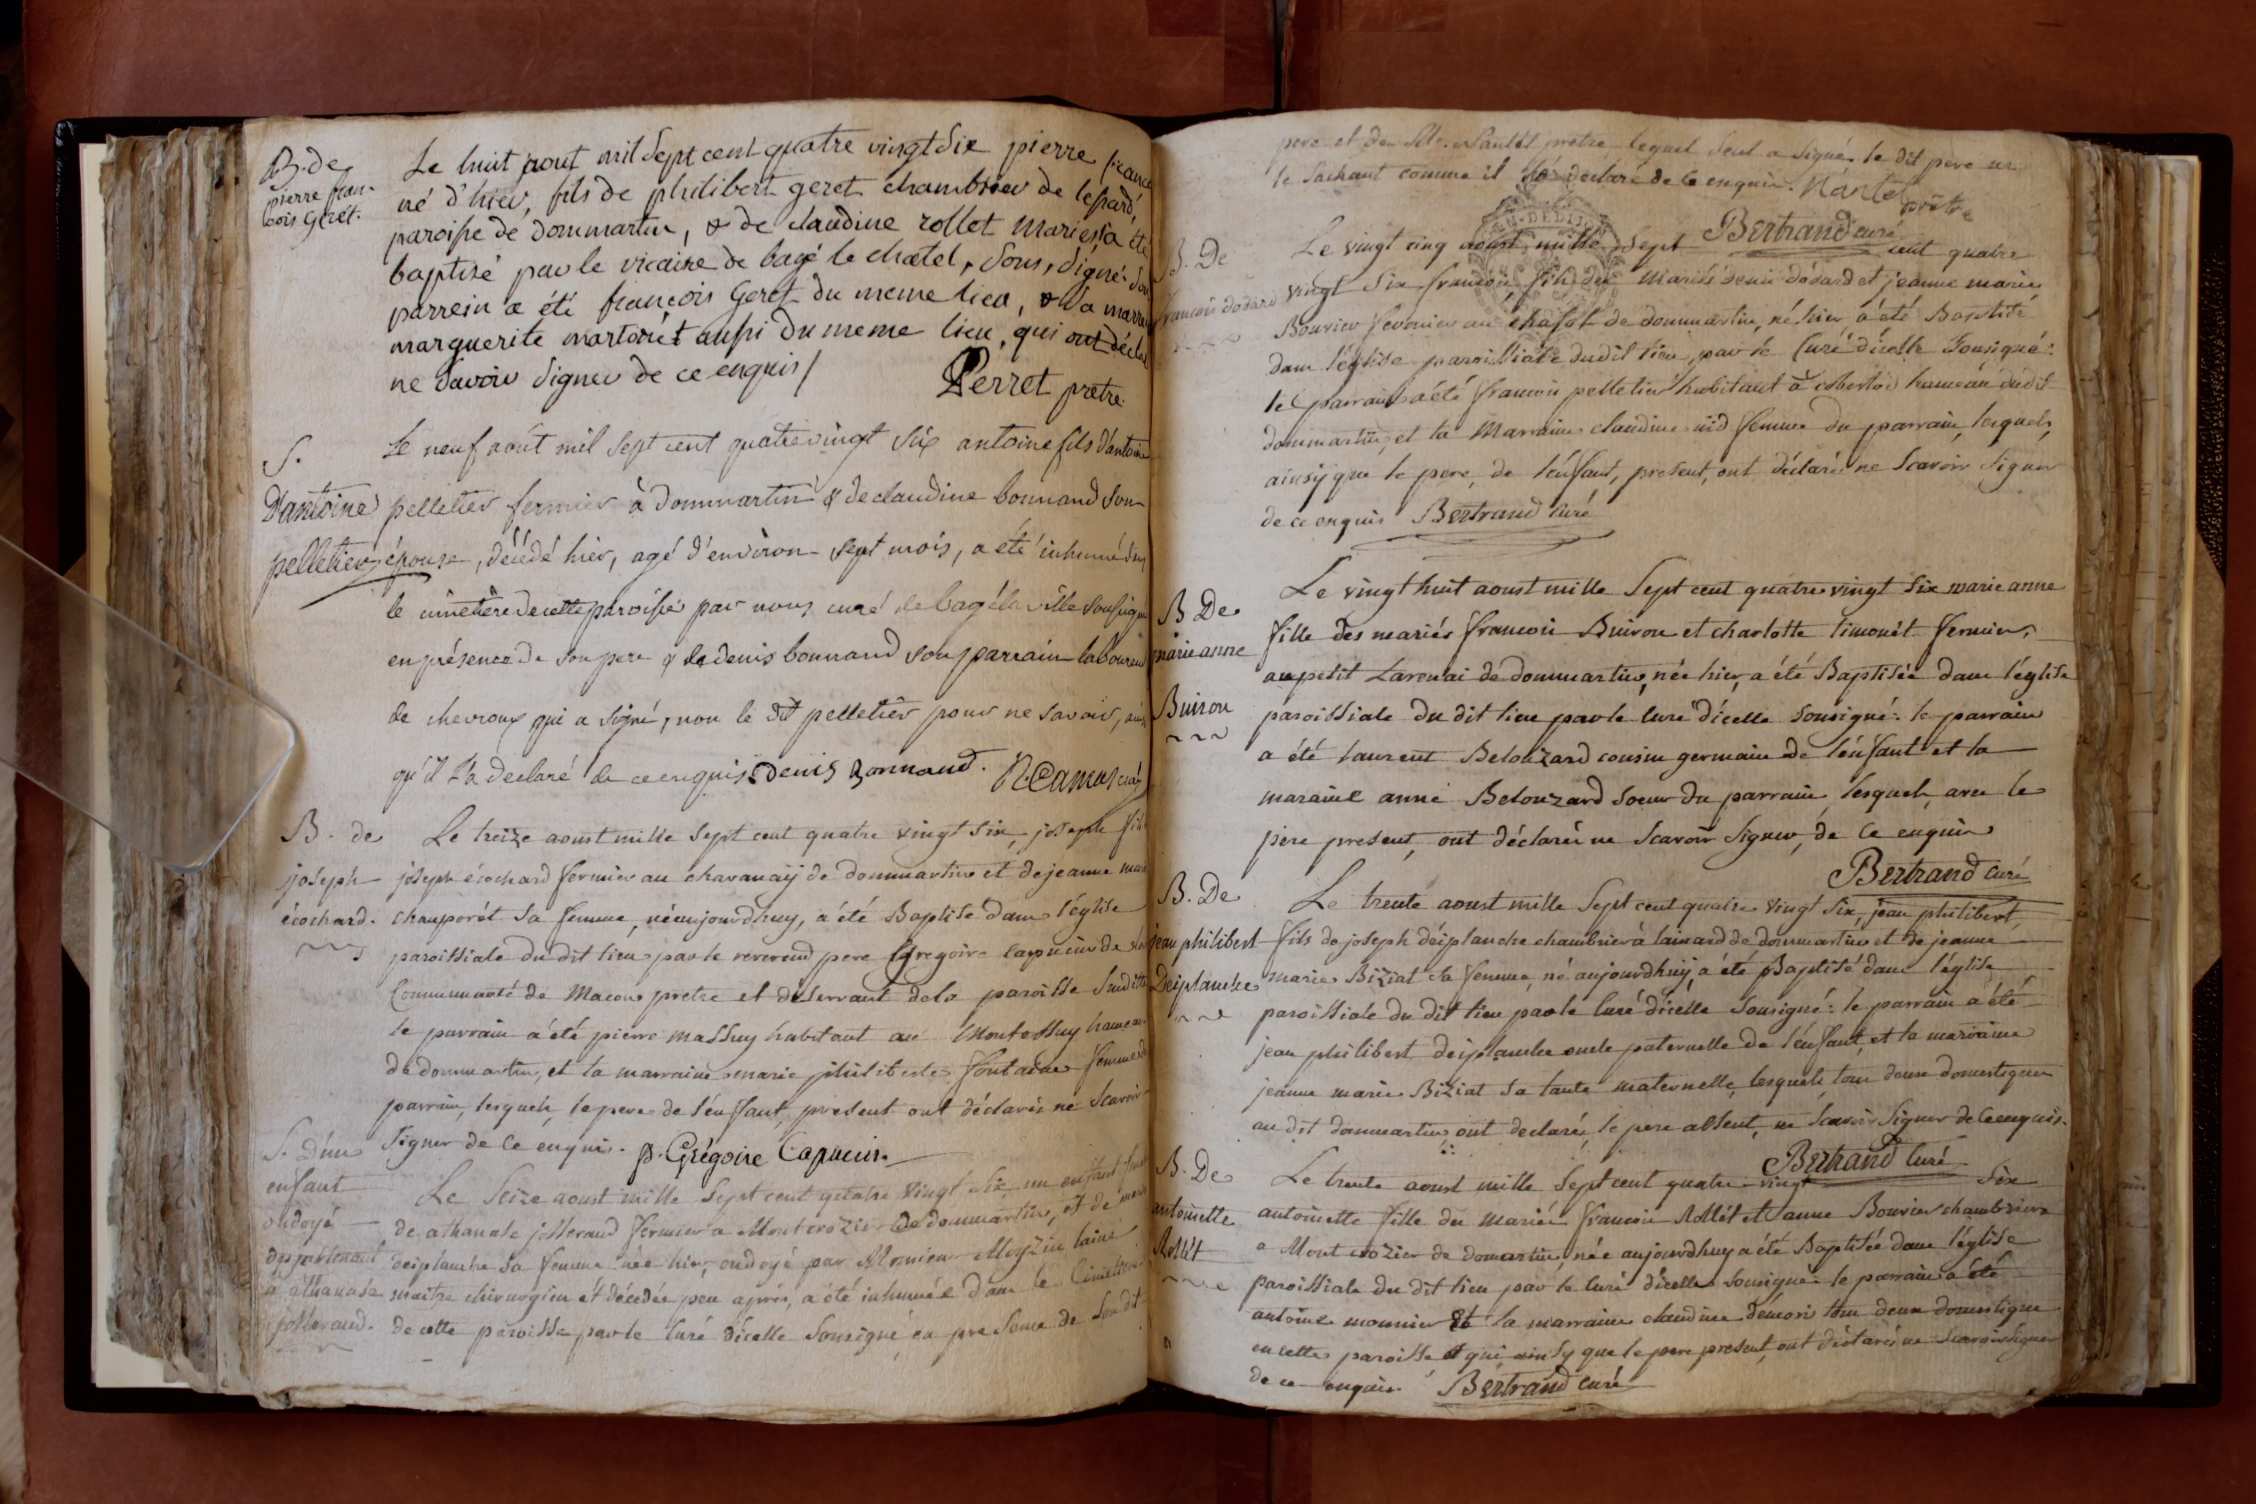 B. de
pierre fran-
cois Geret.
Le huit aout mil Sept cent quatre vingt Six pierre
né d'hier, fils de philibert geret chambrier de lepard,
paroisse de dommartin, & de claudine rollet mariés, a été
baptisé par le vicaire de bagé le chatel, Sous, Signé. Son
parrein a été françois Geret du meme lieu, & la marrei
marguerite martoret aussi du meme lieu, qui ont décla
ne Savoir Signer de ce enquis /
Perret pretre
S.
D'antoine
pelletier
Le neuf août mil Sept cent quatre vingt Six antoine fils d'antoine
pelletier fermier à dommartin & de claudine bonnand Son
épouse, décédé hier, agé d'environ Sept mois, a été inhumé dans
le cimetière de cette paroisse par nous curé de bagé la ville Soussigné
en présence de Son pere & de denis bonnand Son parrain laboureur
de chevroux qui a Signé, non le dit pelletier pour ne Savoir, ainsi
qu'il l'a declaré de ce enquis. Denis Bonnand. N. Camus curé
B. de
joseph
écochard.
Le treize aoust mille Sept cent quatre vingt Six, joseph fils
joseph écochard fermier au chavanaÿ de dommartin et de jeanne mari
chanporét Sa femme, né aujourdhuy, a été Baptisé dans l'église
paroissiale du dit lieu par le reverend pere Gregoire capucin de la
Communauté de Macon pretre et desservant de la paroisse Suditte
le parrain a été pierre massuy habitant au Montessuy hameau
de dommartin, et la marraine marie philiberte fontaine femme du
parrain, lesquels, le pere de l'enfant, present ont déclarés ne Scavoir
Signer de Ce enquis. p. Grégoire Capucin.
S. D'un
enfant
ondoyé
appartenant
a athanase
josserand.
Le Seize aoust mille Sept cent quatre vingt Six un enfant
de athanase josserand fermier a Montcrozier de dommartin, et de marie
deiplanche Sa femme née hier, ondoyé par Monsieur Moyzin lainé
maitre chirurgien et décédée peu après, a été inhumée dans le Cimetiere
de cette paroisse par le Curé d'icelle Sousigné en presence de Son dit
pere et de Mr. Santét pretre lequel Seul a Signé le dit pere ne
le Sachant comme il l'a declaré de Ce enquis.
prêtre
Bertrand curé
B. De
francois dodard
Le vingt cinq aoust mille Sept cent quatre
vingt Six francois, fils des mariés denis dodard et jeanne marie
Bouvier fermier au chafot de dommartin, né hier a été Baptisé
dans l'église paroissiale dudit lieu par le Curé d'icelle Sousigné:
le parrain a été francois pelletier habitant à hameau dudit
dommartin, et la Marraine claudine nid femme du parrain, lesquels,
ainsy que le pere, de l'enfant, present, ont déclarés ne Scavoir Signer
de ce enquis Bertrand curé
B De
marie anne
Buiron
Le vingt huit aoust mille Sept cent quatre vingt Six marie anne
fille des mariés francois Buiron et charlotte limonét fermier,
au petit Larenai de dommartin, née hier, a été Baptisée dans l'église
paroissiale du dit lieu par le Curé d'icelle Sousigné: le parrain
a été laurent Belouzard cousin germain de l'enfant et la
maraine anne Belouzard Soeur du parrain, lesquels, avec le
père present, ont déclarés ne Scavoir Signer, de Ce enquis
Bertrand Curé
B. De
jean philibert
Deiplanche
Le trente aoust mille Sept cent quatre vingt Six, jean philibert,
fils de joseph deiplanche chambrier à lainard de dommartin et de jeanne
marie Biziat Sa femme, né aujourdhuÿ, a été Baptisé dans l'église
paroissiale du dit lieu par le Curé d'icelle Sousigné: le parrain a été
jean philibert deiplanche oncle paternelle de l'enfant et la marraine
jeanne marie Biziat Sa tante maternelle, lesquels, tous deux domestiques
au dit dommartin ont declaré, le pere absent, ne Scavoir Signer de Ce enquis.
Bertrand Curé
B. De
antoinette
Rollét
Le trente aoust mille Sept cent quatre vingt Six
antoinette fille des mariés francois Rollét et anne Bouvier chambriers
a Montcrozier de domartin, née aujourdhuy a été Baptisée dans l'église
paroissiale du dit lieu par le Curé d'icelle Sousigné: le parrain a été
antoine monnier et la marraine claudine démoris tous deux domestique
en cette paroisse et qui ainsy que le pere present, ont déclarés ne Scavoir Signer
de ce enquis Bertrand curé